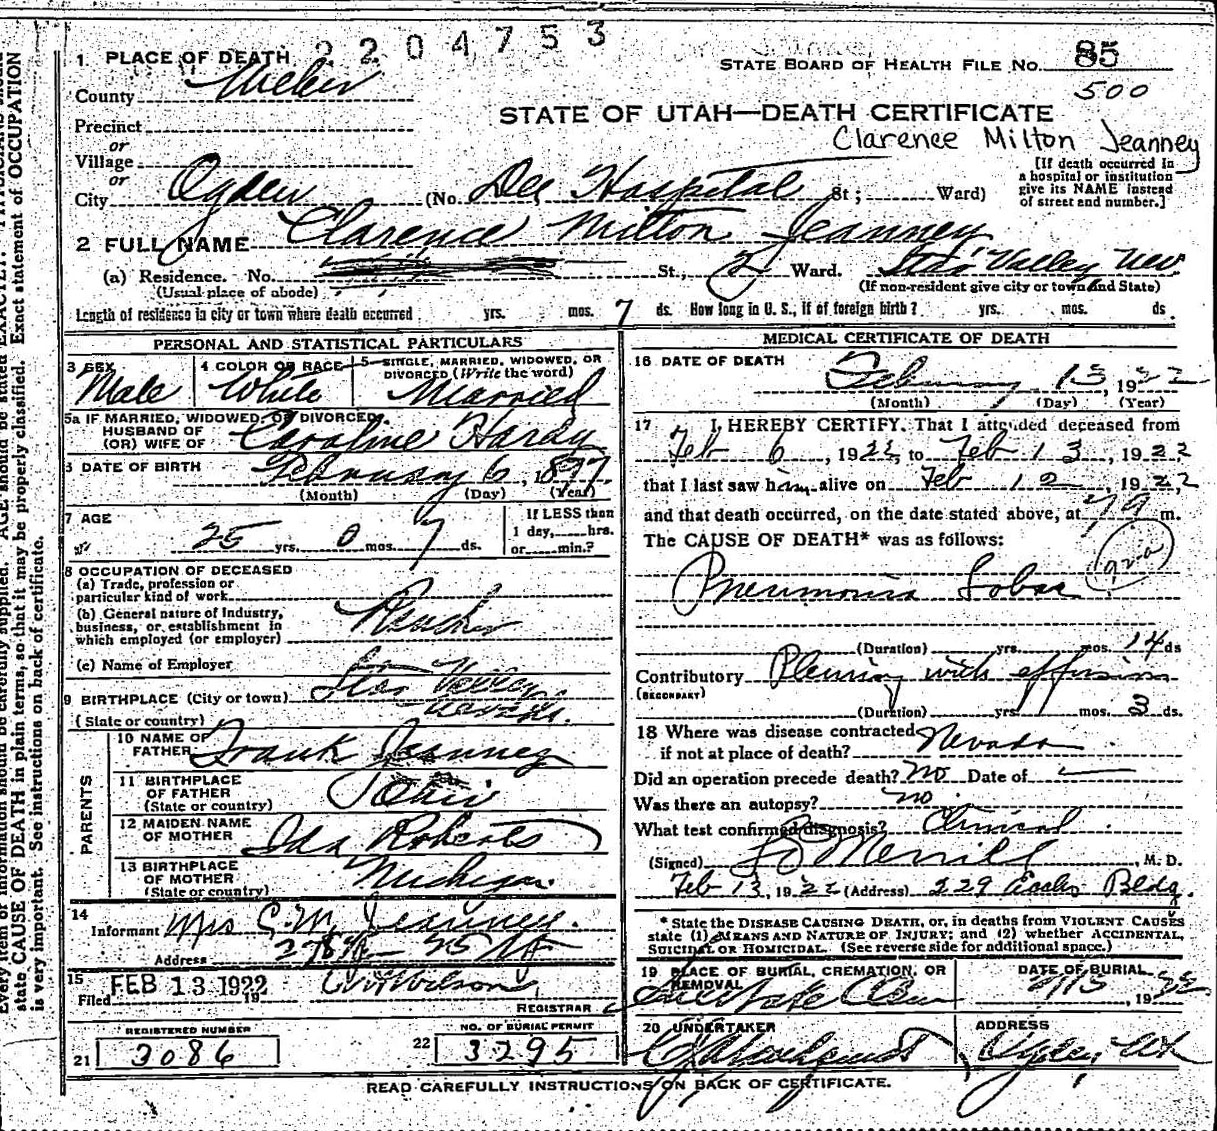 2204753
1 PLACE OF DEATH
STATE BOARD OF HEALTH FILE NO. 85
County Weber
500
STATE OF UTAH—DEATH CERTIFICATE
Precinct
Clarence Milton Jeanney
or
Village
or
City Ogden (No. Dee Hospital St; Ward)
[If death occurred in
a hospital or institution
give its NAME instead
of street and number.]
2 FULL NAME Clarence Milton Jeanney
(a) Residence. No. St., 2 Ward. Star Valley Nev.
(Usual place of abode) (If non-resident give city or town and State)
Length of residence in city or town where death occurred yrs. mos. 7 ds. How long in U. S., if of foreign birth? yrs. mos. ds.
PERSONAL AND STATISTICAL PARTICULARS
3 SEX Male
4 COLOR OR RACE White
5 SINGLE, MARRIED, WIDOWED, OR
DIVORCED (Write the word)
Married
5a IF MARRIED, WIDOWED, OR DIVORCED,
HUSBAND OF
(OR) WIFE OF Caroline Hardy
DATE OF BIRTH February 6, 1897
(Month) (Day) (Year)
7 AGE
25 yrs. 0 mos. 7 ds.
If LESS than
1 day, hrs.
or min.?
8 OCCUPATION OF DECEASED
(a) Trade, profession or
particular kind of work
(b) General nature of Industry,
business, or establishment in
which employed (or employer)
Rancher
(c) Name of Employer
9 BIRTHPLACE (City or town) Star Valley
(State or country) Nevada.
PARENTS
10 NAME OF
FATHER Frank Jeanney
11 BIRTHPLACE
OF FATHER
(State or country)
12 MAIDEN NAME
OF MOTHER Ida Roberts
13 BIRTHPLACE
OF MOTHER
(State or country) Michigan
14
Informant Mrs C. M. Jeanney.
Address 278 25 St
15
Filed FEB 13 1922 19 Wilson
REGISTRAR
REGISTERED NUMBER
21 3086
NO. OF BURIAL PERMIT
22 3295
MEDICAL CERTIFICATE OF DEATH
16 DATE OF DEATH
February 13, 1922
(Month) (Day) (Year)
17 I HEREBY CERTIFY. That I attended deceased from
Feb 6, 1922, to Feb 13, 1922
that I last saw him alive on Feb 12, 1922
and that death occurred, on the date stated above, at m.
The CAUSE OF DEATH* was as follows:
Pneumonia Lobar
(Duration) yrs. mos. 14 ds
Contributory Pleurisy with effusion
(SECONDARY)
(Duration) yrs. mos. 3 ds.
18 Where was disease contracted
if not at place of death? Nevada
Did an operation precede death? No Date of
Was there an autopsy? no.
What test confirmed diagnosis? Clinical
(Signed) Merrill, M. D.
Feb 13, 1922 (Address) 229 Eccles Bldg.
* State the DISEASE CAUSING DEATH, or, in deaths from VIOLENT CAUSES
state (1) MEANS AND NATURE OF INJURY; and (2) whether ACCIDENTAL,
SUICIDAL OR HOMICIDAL. (See reverse side for additional space.)
19 PLACE OF BURIAL, CREMATION, OR
REMOVAL
DATE OF BURIAL
2/15, 1922
20 UNDERTAKER
ADDRESS
Ogden, Ut
READ CAREFULLY INSTRUCTIONS ON BACK OF CERTIFICATE.
state CAUSE OF DEATH in plain terms, so that it may be properly classified. Exact statement of OCCUPATION
is very important. See instructions on back of certificate.